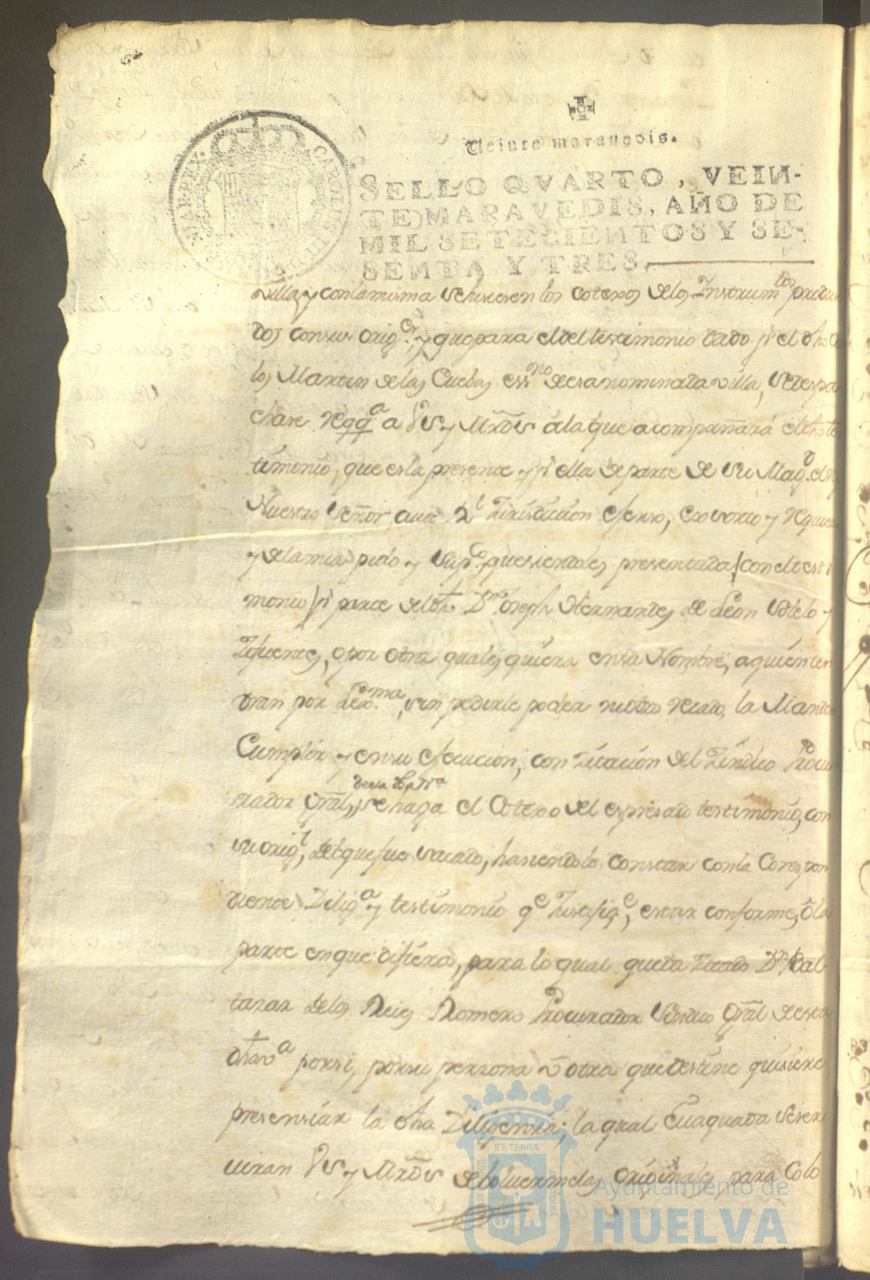 Veinte maravedis.
SELLO QVARTO, VEIN-
TE MARAVEDIS, AÑO DE
MIL SETECIENTOS Y SE-
SENTA Y TRES.
CAROLUS III
villa, y con la misma se hiciesen los cotexos de los Instrum.tos produ
dos con sus orig.es y que para el del testimonio dado p.r el dho
los Martin de las Cuebas ess.no de esa nominada villa, se despa
chase Req.a a Vs y Mrds a la que acompañará el dho tes
timonio, que es la presente y p.r ella de parte de su Mag.d el
Nuestro Señor, cuia R.l Jurisdiccion exerso, exsorto y requie
y de la mia pido y sup.co que siendoles presentada (con el testi
monio) p.r parte del dho D.n Joseph Hernandes de Leon Sotelo y
Zifuentes, o por otra qualesquiera en su Nombre, a quien ten
dran por lex.ma, sin pedirle poder ni otro recado, la Manden
Cumplir y en su execucion, con Zitacion del Zindico Procu
rador Gral, de esa Rp.ca se haga el Cotexo del expresado testimonio, con
su orig.l, del que fue sacado, hasiendolo constar con la Correspon
diente Dilig.a y testimonio q.e Justifiq.e, estar conforme, ô la
parte en que difiera, para lo qual queda Zitado D.n Bal
tazar de los Reies Romero Procurador Sindico Gral de esta
dha v.a por si, por su persona û otra que destine quisiere
presensiar la dha Diligencia; la qual Euaquada se ser
uiran Vs y Mrds deboluermelas originales para Colo
ET TERRÆ
Ayuntamiento de
HUELVA